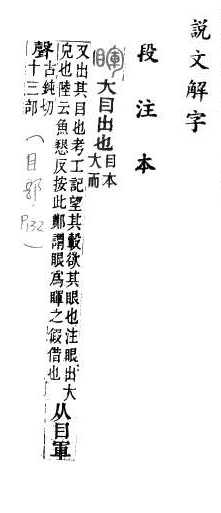 說文解字
段注本
睴 大目出也 目本大而
又出其目也考工記望其轂欲其眼也注眼出大
皃也陸云魚懇反按此鄭謂眼爲睴之叚借也
从目軍
聲 古鈍切十三部
(目部 P132)